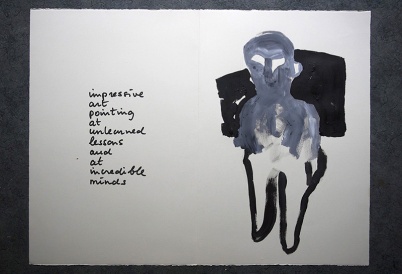 impressive
art
pointing
at
unlearned
lessons
and
at
incredible
minds